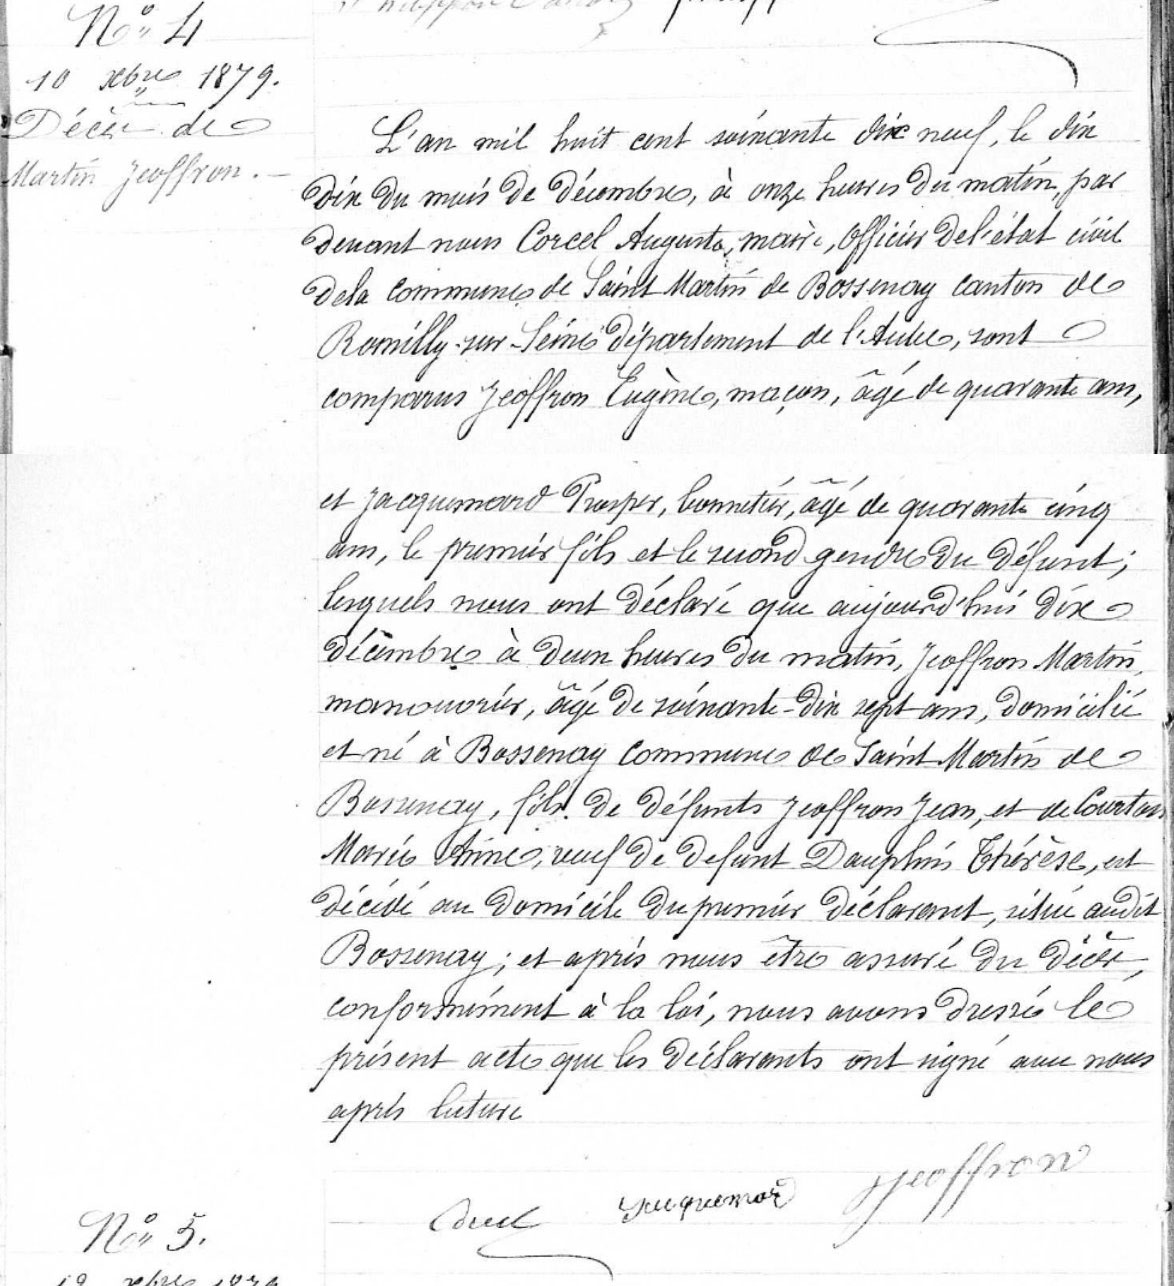 N° 4
10 xbre 1879.
Décès de
Martin Jeoffron.
L'an mil huit cent soixante dix neuf, le dix
dix du mois de décembre, à onze heures du matin, par
devant nous Corcel Auguste, maire, Officier de l'état civil
de la commune de Saint Martin de Bossenay canton de
Romilly-sur-Seine département de l'Aube, sont
comparus Jeoffron Eugène, maçon, âgé de quarante ans,
et Jacquemard Prosper, bonnetier, âgé de quarante cinq
ans, le premier fils et le second gendre du défunt;
lesquels nous ont déclaré que aujourd'hui dix
décembre à deux heures du matin, Jeoffron Martin,
manouvrier, âgé de soixante-dix sept ans, domicilié
et né à Bossenay commune de Saint Martin de
Bossenay, fils de défunts Jeoffron Jean, et de Courtois
Marie Anne, veuf de defunt Dauphin Thérèse, est
décédé au domicile du premier déclarant, situé audit
Bossenay; et après nous être assuré du décès,
conformément à la loi, nous avons dressé le
présent acte que les déclarants ont signé avec nous
après lecture
Jeoffron
Jacquemard
N° 5.
xbre 1879